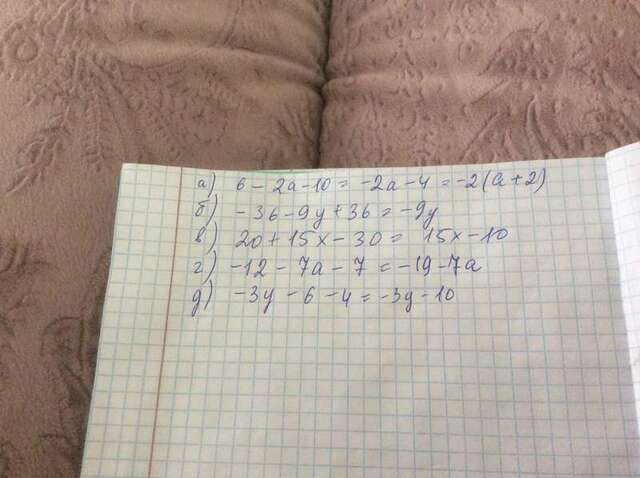 а) 6 - 2a - 10 = -2a - 4 = -2(a + 2)
б) -36 - 9y + 36 = -9y
в) 20 + 15x - 30 = 15x - 10
г) -12 - 7a - 7 = -19 - 7a
д) -3y - 6 - 4 = -3y - 10